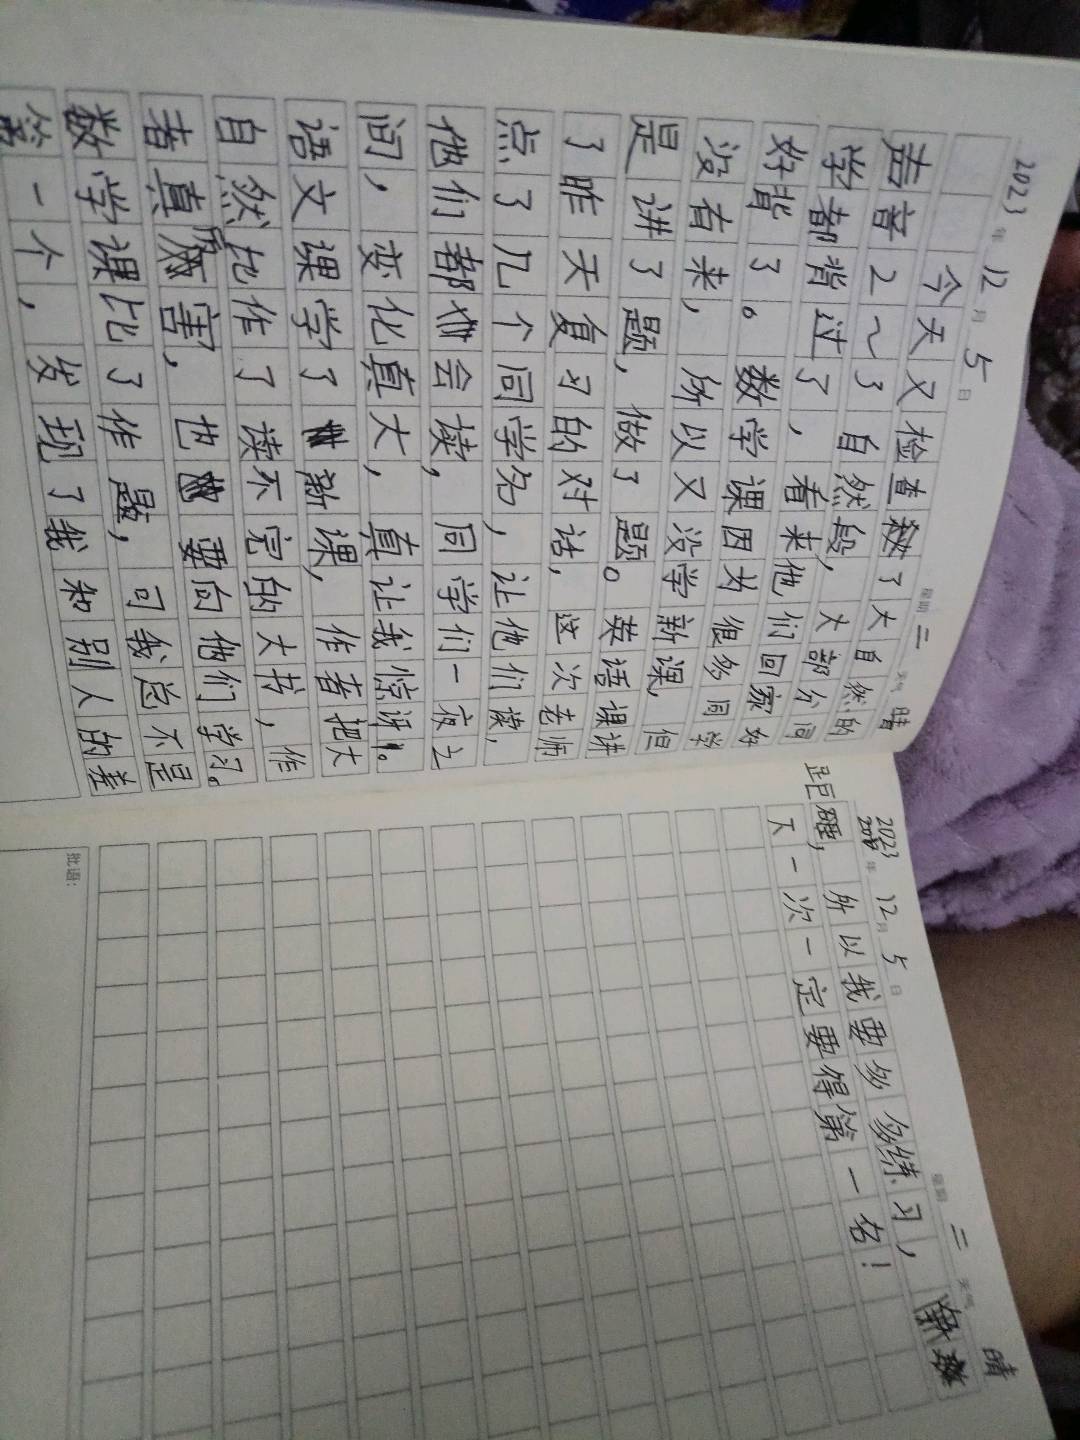 2023年 12月 5日 星期 二 天气 晴
今天又检查了大自然的
声音2~3自然段,大部分同
学都背过了,看来他们回家好
好背了。数学课因为很多同学
没有来,所以又没学新课,但
是讲了题,做了题。英语课讲
了昨天复习的对话,这次老师
点了几个同学名,让他们读,
他们都会读,同学们一夜之
间,变化真大,真让我惊讶!。
语文课学了新课,作者把大
自然比作了读不完的大书,作
者真厉害,也要向他们学习。
数学课比了作题,可我总不是
第一个,发现了我和别人的差
2023年 12月 5日 星期 二 天气 晴
距,所以我要多多练习,
下一次一定要得第一名!
批语: